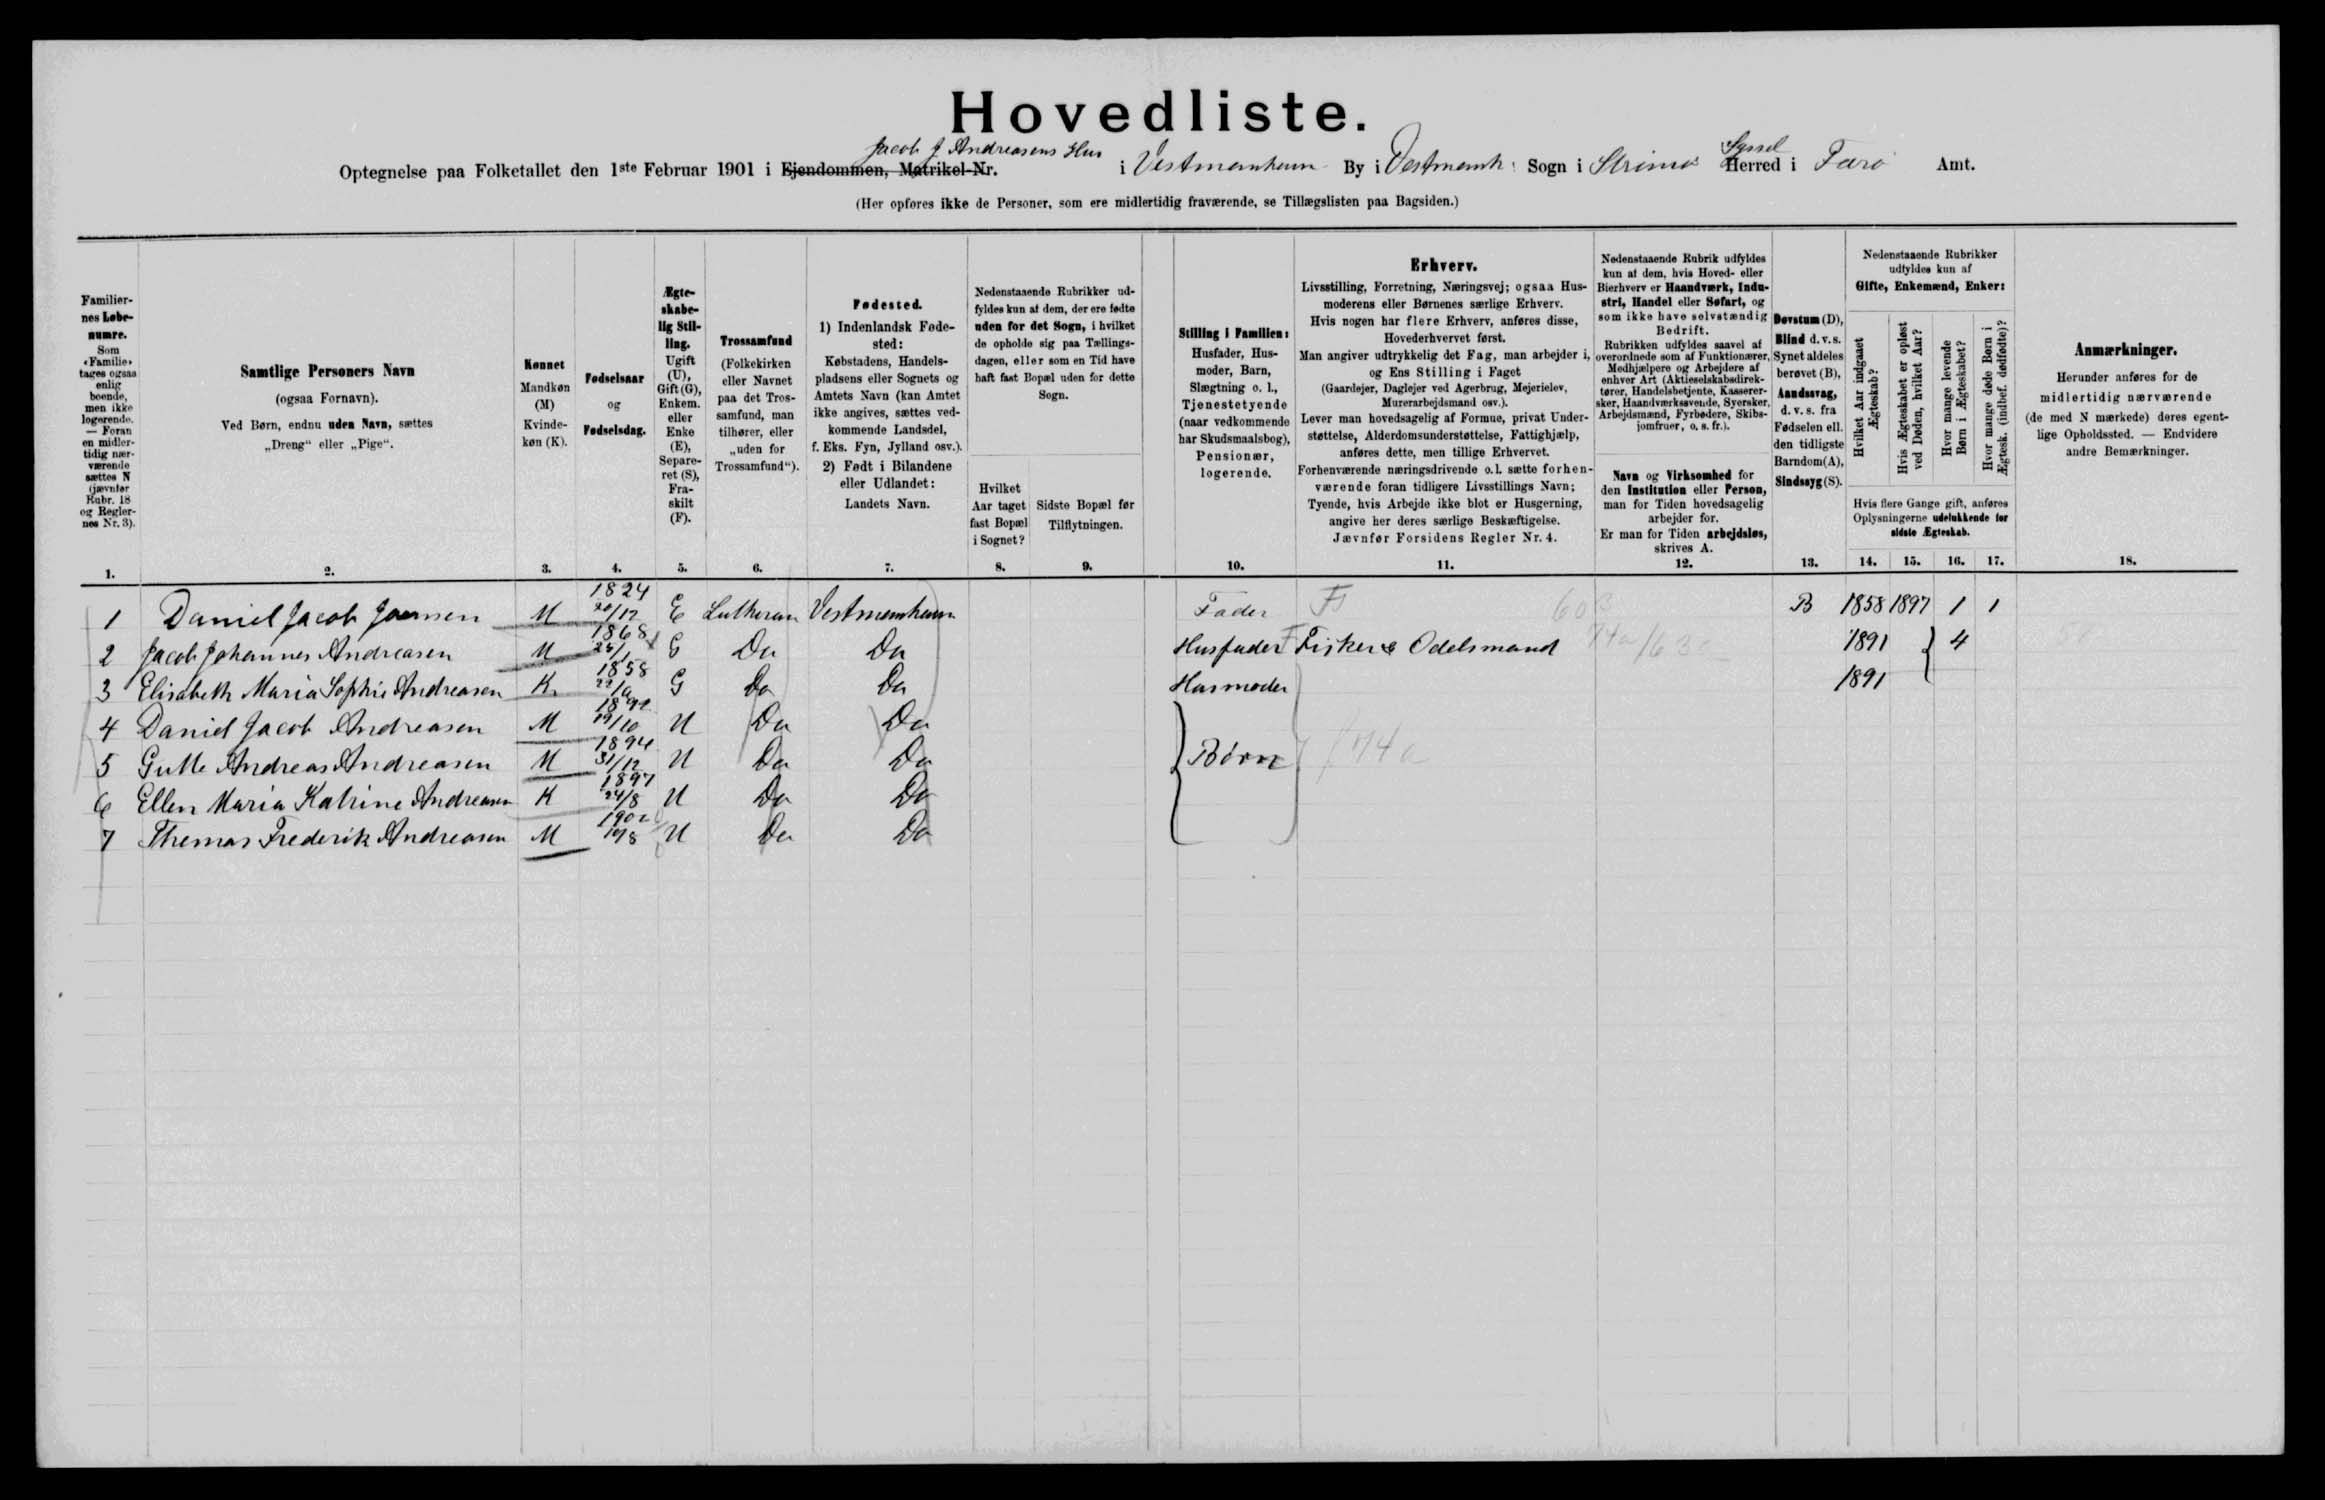 Hovedliste.
Jacob J Andreasens Hus
Syssel
Optegnelse paa Folketallet den 1ste Februar 1901 i Ejendommen, Matrikel-Nr. i Vestmanhavn By i Vestmanh: Sogn i Strømø Herred i Færø Amt.
(Her opføres ikke de Personer, som ere midlertidig fraværende, se Tillægslisten paa Bagsiden.)
Familier-
nes Løbe-
numre.
Som
«Familie»
tages ogsaa
enlig
boende,
men ikke
logerende.
— Foran
en midler-
tidig nær-
værende
sættes N
(jævnfør
Rubr. 18
og Regler-
nes Nr. 3).
Samtlige Personers Navn
(ogsaa Fornavn).
Ved Børn, endnu uden Navn, sættes
„Dreng“ eller „Pige“.
Kønnet
Mandkøn
(M)
Kvinde-
køn (K).
Fødselsaar
og
Fødselsdag.
Ægte-
skabe-
lig Stil-
ling.
Ugift
(U),
Gift (G),
Enkem.
eller
Enke
(E),
Separe-
ret (S),
Fra-
skilt
(F).
Trossamfund
(Folkekirken
eller Navnet
paa det Tros-
samfund, man
tilhører, eller
„uden for
Trossamfund“).
Fødested.
1) IndenlandskFøde-
sted:
Købstadens, Handels-
pladsens eller Sognets og
Amtets Navn (kan Amtet
ikke angives, sættes ved-
kommende Landsdel,
f. Eks. Fyn, Jylland osv.).
2) Født i Bilandene
eller Udlandet:
Landets Navn.
Nedenstaaende Rubrikker ud-
fyldes kun af dem, der ere fødte
uden for det Sogn, i hvilket
de opholde sig paa Tællings-
dagen, eller som en Tid have
haft fast Bopæl uden for dette
Sogn.
Hvilket
Aar taget
fast Bopæl
i Sognet?
Sidste Bopæl før
Tilflytningen.
Stilling i Familien:
Husfader, Hus-
moder, Barn,
Slægtning o. l.,
Tjenestetyende
(naar vedkommende
har Skudsmaalsbog),
Pensionær,
logerende.
Erhverv.
Livsstilling, Forretning, Næringsvej; ogsaa Hus-
moderens eller Børnenes særlige Erhverv.
Hvis nogen har flere Erhverv, anføres disse,
Hovederhvervet først.
Man angiver udtrykkelig det Fag, man arbejder i,
og Ens Stilling i Faget
(Gaardejer, Daglejer ved Agerbrug, Mejerielev,
Murerarbejdsmand osv.).
Lever man hovedsagelig af Formue, privat Under-
støttelse, Alderdomsunderstøttelse, Fattighjælp,
anføres dette, men tillige Erhvervet.
Forhenværende næringsdrivende o. l. sætte forhen-
værende foran tidligere Livsstillings Navn;
Tyende, hvis Arbejde ikke blot er Husgerning,
angive her deres særlige Beskæftigelse.
Jævnfør Forsidens Regler Nr. 4.
Nedenstaaende Rubrik udfyldes
kun af dem, hvis Hoved- eller
Bierhverv er Haandværk, Indu-
stri, Handel eller Søfart, og
som ikke have selvstændig
Bedrift.
Rubrikken udfyldes saavel af
overordnede som af Funktionærer,
Medhjælpere og Arbejdere af
enhver Art (Aktieselskabsdirek-
tører, Handelsbetjente, Kasserer-
sker, Haandværkssvende, Syersker,
Arbejdsmænd, Fyrbødere, Skibs-
jomfruer, o. s. fr.).
Navn og Virksomhed for
den Institution eller Person,
man for Tiden hovedsagelig
arbejder for.
Er man for Tiden arbejdsløs,
skrives A.
Døvstum (D),
Blind d. v. s.
Synet aldeles
berøvet (B),
Aandssvag,
d. v. s. fra
Fødselen ell.
den tidligste
Barndom (A),
Sindssyg (S).
Nedenstaaende Rubrikker
udfyldes kun af
Gifte, Enkemænd, Enker:
Hvilket Aar indgaaet
Ægteskab?
Hvis Ægteskabet er opløst
ved Døden, hvilket Aar?
Hvor mange levende
Børn i Ægteskabet?
Hvor mange døde Børn i
Ægtesk. (indbef. dødfødte)?
Hvis flere Gange gift, anføres
Oplysningerne udelukkende for
sidste Ægteskab.
Anmærkninger.
Herunder anføres for de
midlertidig nærværende
(de med N mærkede) deres egent-
lige Opholdssted. — Endvidere
andre Bemærkninger.
1. 2. 3. 4. 5. 6. 7. 8. 9. 10. 11. 12. 13. 14. 15. 16. 17. 18.
1 Daniel Jacob Joensen M 1824 20/12 E Lutheran Vestmanhavn Fader B 1858 1897 1 1
2 Jacob Johannes Andreasen M 1868 G Do Do Husfader Fisker & Odelsmand 1891 4
3 Elisabeth Maria Sophie Andreasen K 1858 G Do Do Husmoder 1891
4 Daniel Jacob Andreasen M 19/10 U Do Do
5 Gutte Andreas Andreasen M 1894 31/12 U Do Do Børn 74a
6 Ellen Maria Katrine Andreasen K 1897 24/8 U Do Do
7 Thomas Frederik Andreasen M U Do Do